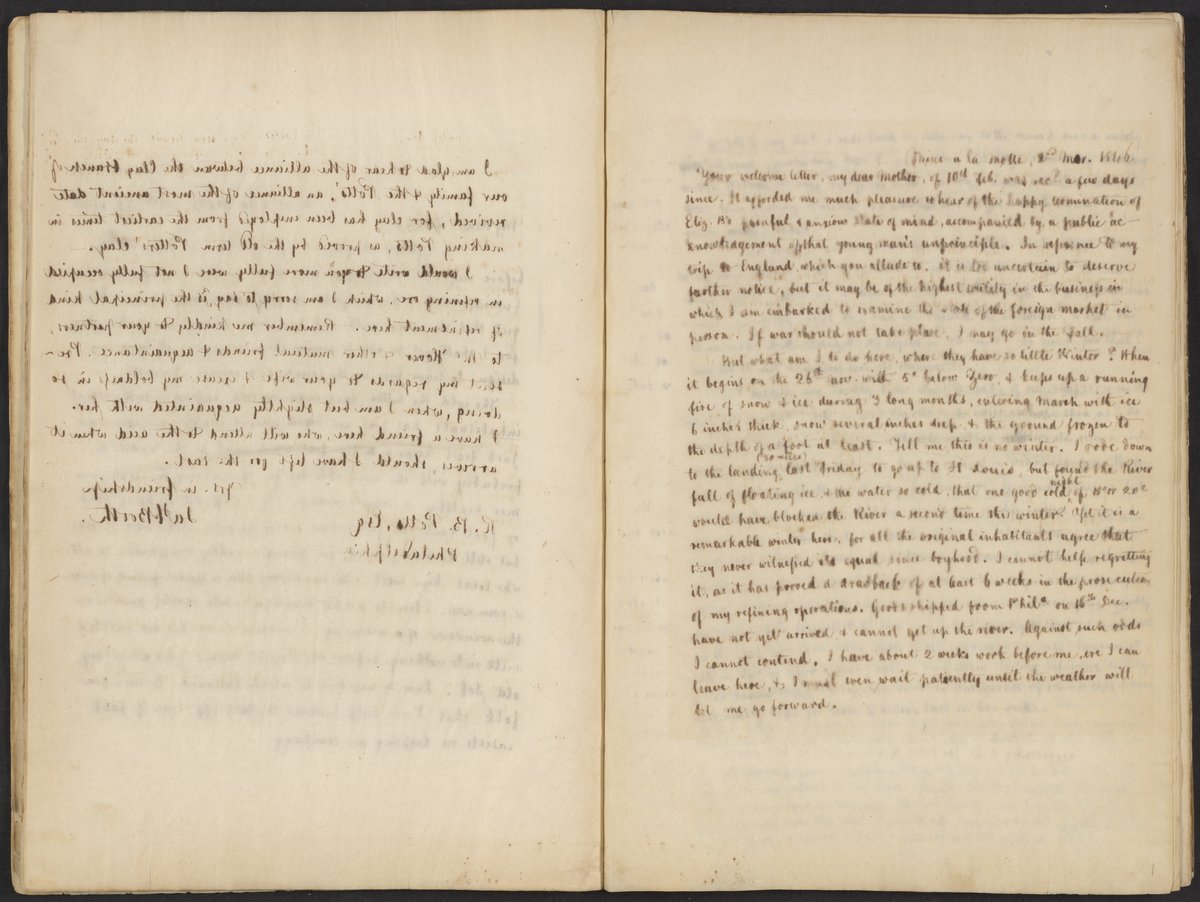 I am glad to hear of the alliance between the Clay branch of
our family & the Potts', an alliance of the most ancient date
received, for clay has been employ'd from the earliest times in
making Potts, as proved by the old term Potters' clay.
I would write more fully were I not fully occupied
in refining ore, which I am sorry to say is the principal kind
of refinement here. Remember me kindly to your partner,
to & other mutual friends & acquaintance. Pre-
sent my regards to your wife & excuse my boldness in so
doing, when I am but slightly acquainted with her.
I have a friend here, who will attend to the acid when it
arrives, should I have left for the East.
Yrs. in friendship
Jas. C. Booth.
R. B. Potts, Esq
Philadelphia
Mine a la Motte, 2d Mar. 1846.
Your welcome letter, my dear Mother, of 10th Feb. was recd. a few days
since. It afforded me much pleasure to hear of the happy termination of
Eliz. B's painful & anxious state of mind, accompanied by a public ac-
knowledgement of that young man's unprinciple. In reference to my
trip to England, which you allude to, it is too uncertain to deserve
farther notice, but it may be of the highest utility in the business in
which I am embarked to examine the state of the foreign market in
person. If war should not take place, I may go in the fall.
But what am I to do here, where they have so little Winter? When
it begins on the 26th nov. with 5° below Zero, & keeps up a running
fire of snow & ice during 3 long months, entering March with ice
6 inches thick, snow several inches deep, & the ground frozen to
the depth of a foot at least. Tell me this is no winter. I rode down
to the landing (30 miles) last Friday to go up to St Louis, but found the River
full of floating ice & the water so cold, that one good cold night of 15° or 20°
would have blocked the River a second time this winter! Yet it is a
remarkable winter here, for all the original inhabitants agree that
they never witnessed its equal since boyhood. I cannot help regretting
it, as it has proved a drawback of at least 6 weeks in the prosecution
of my refining operations. Goods shipped from Phila. on 16th Dec.
have not yet arrived & cannot get up the river. Against such odds
I cannot contend. I have about 2 weeks work before me, ere I can
leave here, & I must even wait patiently until the weather will
let me go forward.